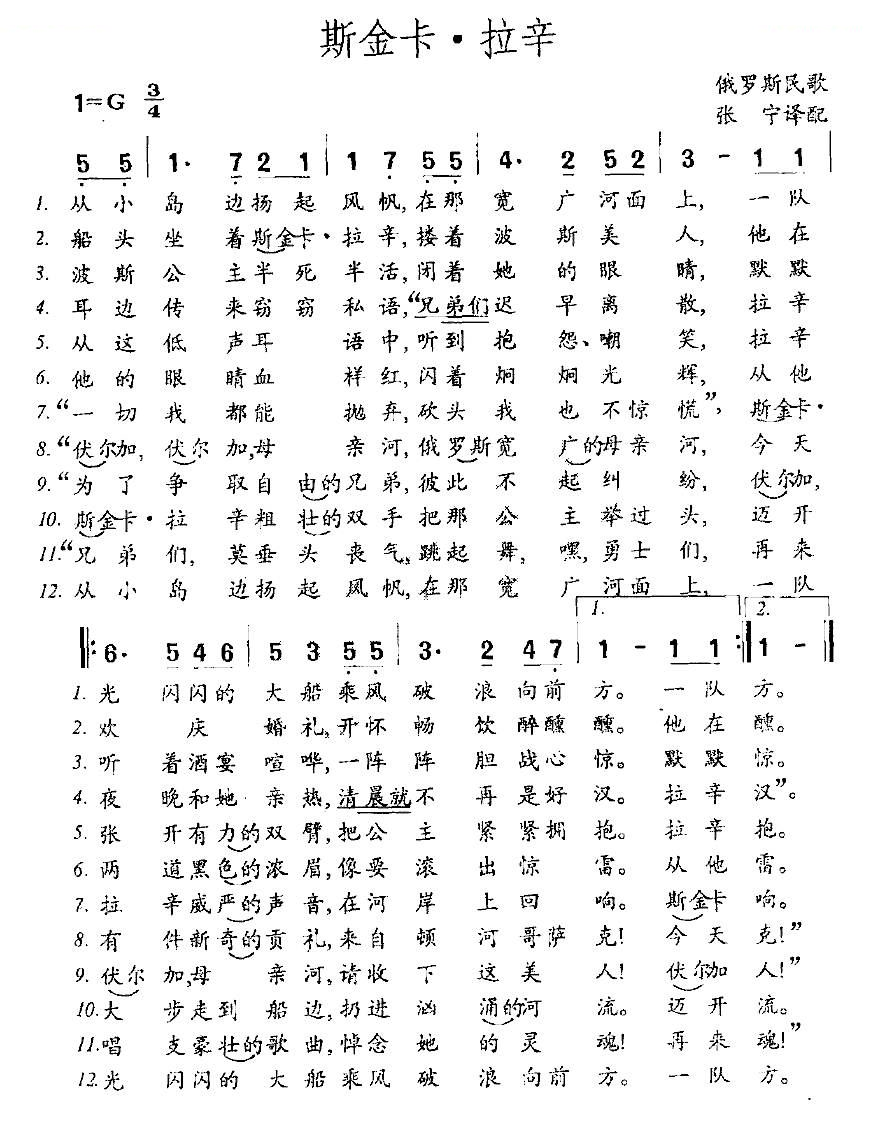 斯金卡·拉辛
俄罗斯民歌
1=G 3/4
张 宁译配
5 5 | 1· 7 2 1 | 1 7 5 5 | 4· 2 5 2 | 3 - 1 1 |
1. 从小岛边扬起风帆,在那宽广河面上,一队
2. 船头坐着斯金卡·拉辛,搂着波斯美人,他在
3. 波斯公主半死半活,闭着她的眼睛,默默
4. 耳边传来窃窃私语,“兄弟们迟早离散,拉辛
5. 从这低声耳语中,听到抱怨、嘲笑,拉辛
6. 他的眼睛血样红,闪着炯炯光辉,从他
7. “一切我都能抛弃,砍头我也不惊慌”,斯金卡·
8. “伏尔加,伏尔加,母亲河,俄罗斯宽广的母亲河,今天
9. “为了争取自由的兄弟,彼此不起纠纷,伏尔加,
10. 斯金卡·拉辛粗壮的双手把那公主举过头,迈开
11. “兄弟们,莫垂头丧气,跳起舞,嘿,勇士们,再来
12. 从小岛边扬起风帆,在那宽广河面上,一队
1. 2.
‖: 6· 5 4 6 | 5 3 5 5 | 3· 2 4 7 | 1 - 1 1 :‖ 1 - ‖
1. 光闪闪的大船乘风破浪向前方。一队方。
2. 欢庆婚礼,开怀畅饮醉醺醺。他在醺。
3. 听着酒宴喧哗,一阵阵胆战心惊。默默惊。
4. 夜晚和她亲热,清晨就不再是好汉。拉辛汉”。
5. 张开有力的双臂,把公主紧紧拥抱。拉辛抱。
6. 两道黑色的浓眉,像要滚出惊雷。从他雷。
7. 拉辛威严的声音,在河岸上回响。斯金卡响。
8. 有件新奇的贡礼,来自顿河哥萨克!今天克!”
9. 伏尔加,母亲河,请收下这美人!伏尔加人!”
10. 大步走到船边,扔进汹涌的河流。迈开流。
11. 唱支豪壮的歌曲,悼念她的灵魂!再来魂!”
12. 光闪闪的大船乘风破浪向前方。一队方。